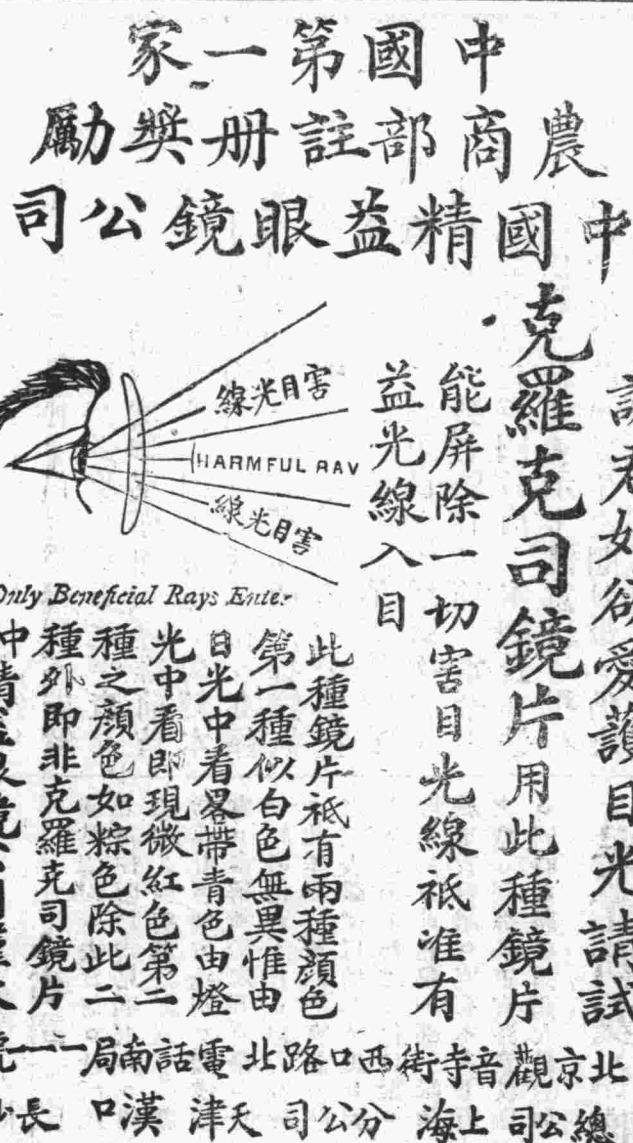 中國第一家
農商部註册獎勵
中國精益眼鏡公司
諸君如欲愛護目光請試
克羅克司鏡片用此種鏡片
能屏除一切害目光線祇准有
益光線入目
害目光線
HARMFUL RAY
害目光線
Only Beneficial Rays Enter
此種鏡片祇有兩種顏色
第一種似白色無異惟由
日光中看畧帶青色由燈
光中看即現微紅色第二
種之顏色如粽色除此二
種外即非克羅克司鏡片
北京觀音寺街西口路北電話南局一一
總公司上海分公司天津漢口長